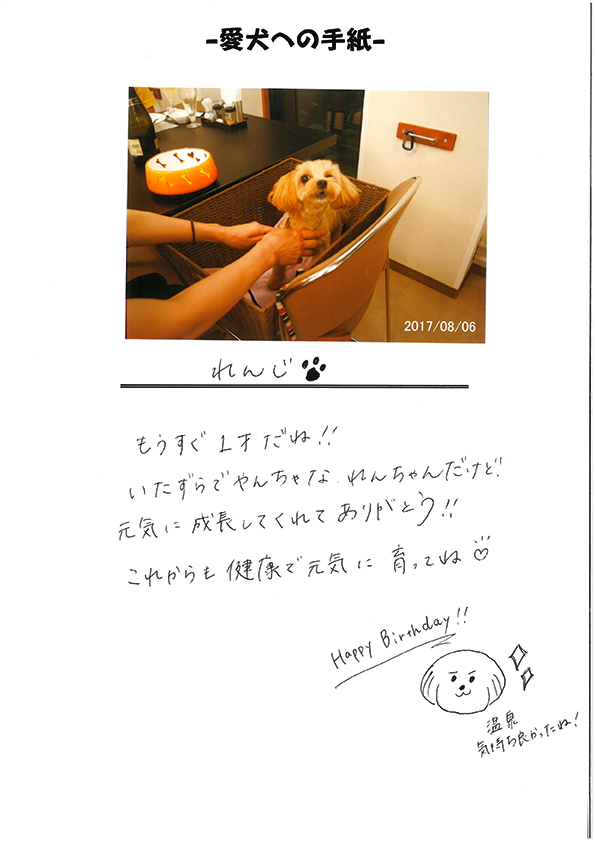 -愛犬への手紙-
2017/08/06
れんじ
もうすぐ1才だね!!
いたずらでやんちゃな れんちゃんだけど!
元気に成長してくれてありがとう!!
これからも健康で元気に育ってね
Happy Birthday!!
温泉
気持ち良かったね!